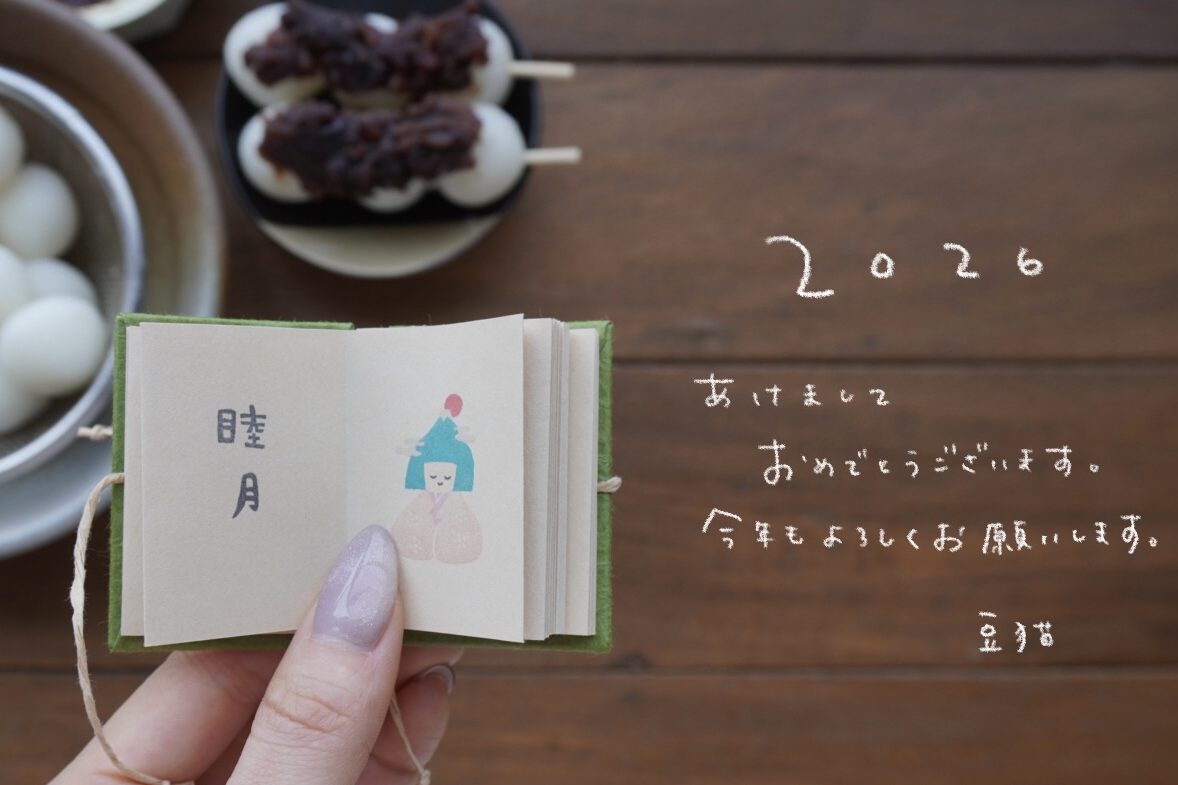 睦
月
2026
あけまして
おめでとうございます。
今年もよろしくお願いします。
豆猫